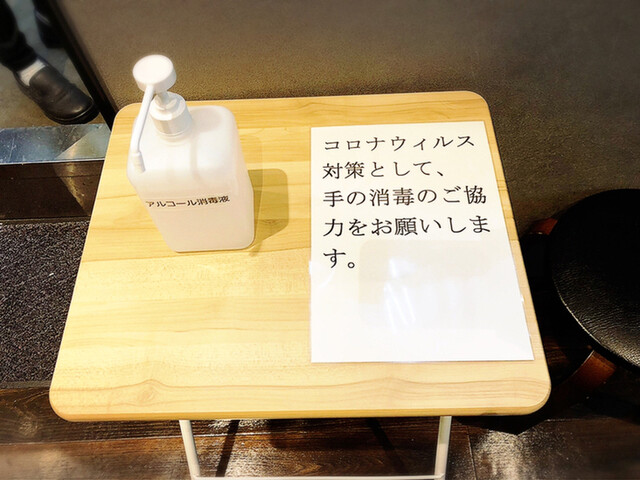 アルコール消毒液
コロナウィルス
対策として、
手の消毒のご協
力をお願いしま
す。